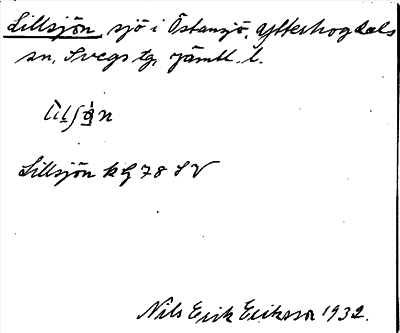 Lillsjön, sjö i Östansjö, Ytterhogdals
sn, Svegs tg, Jämtl. l.
Lillsjön kG 78 SV
Nils Erik Eriksson 1932.